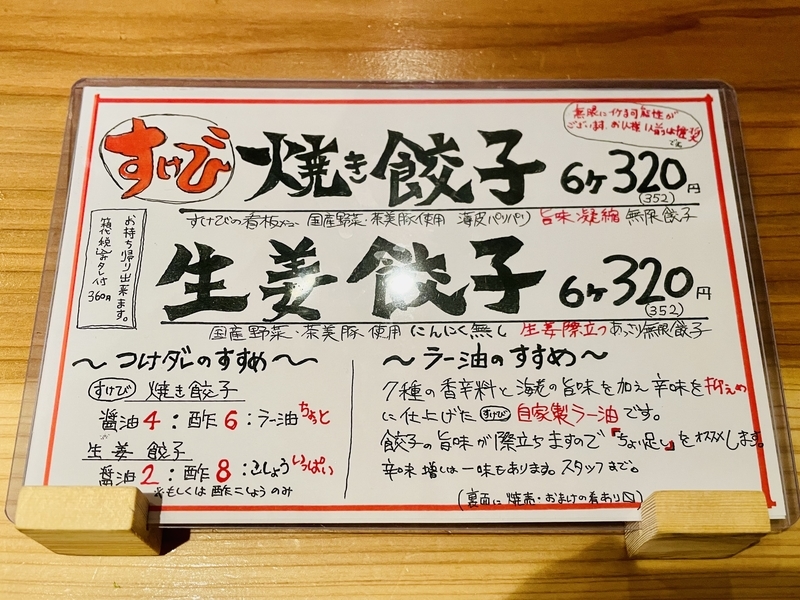 無限にイケる可能性が
ございます。お1人様1人前は確実
です
すけび 焼き餃子 6ヶ320円
(352)
すけびの看板メニュー 国産野菜・茶美豚使用 薄皮パリパリ 旨味凝縮 無限餃子
お持ち帰り出来ます。
箱代税込みタレ付
360円
生姜餃子 6ヶ320円
(352)
国産野菜・茶美豚使用 にんにく無し 生姜際立つ あっさり無限餃子
〜つけダレのすすめ〜
すけび 焼き餃子
醤油4:酢6:ラー油ちょっと
生姜餃子
醤油2:酢8:こしょういっぱい
※もしくは酢こしょうのみ
〜ラー油のすすめ〜
7種の香辛料と海老の旨味を加え辛味を抑えめ
に仕上げた すけび 自家製ラー油です。
餃子の旨味が際立ちますので『ちょい足し』をオススメします。
辛味増しは一味もあります。スタッフまで。
(裏面に焼売・おまけの肴あり